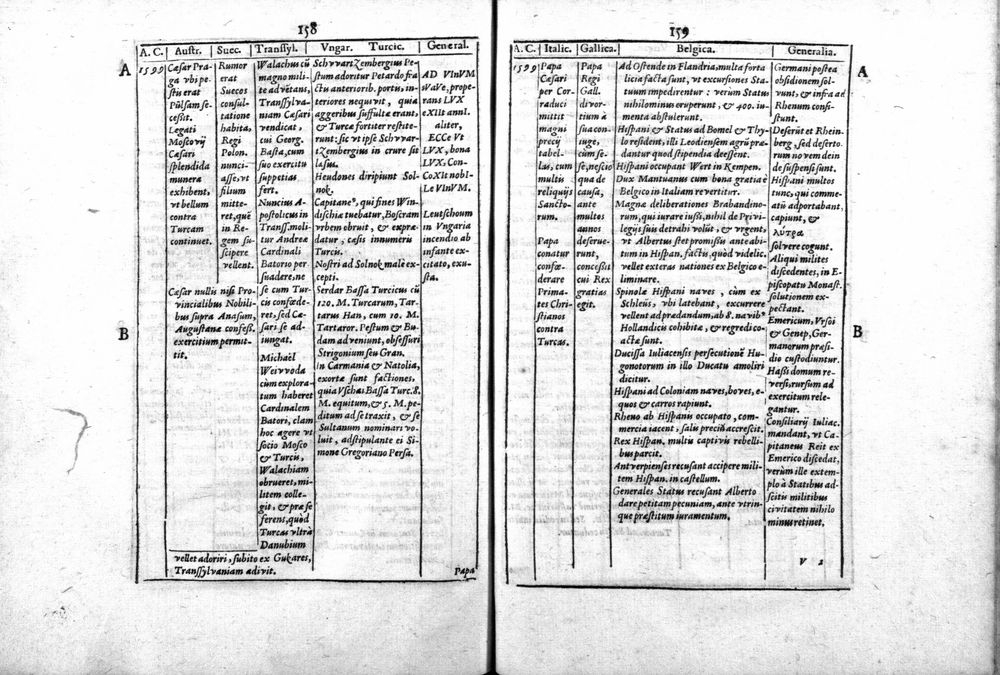 158
A. C.
Austr.
Suec.
Transsyl.
Vngar. Turcic.
General.
A
B
1599
Cæsar Pra-
ga vbi pe-
stis erat
Pilsam se-
cessit.
Legati
Moscovij
Cæsari
splendida
munera
exhibent,
vt bellum
contra
Turcam
continuet.
Cæsar nullis nisi Pro-
vincialibus Nobili-
bus supra Anasum,
Augustanæ confeß.
exercitium permit-
tit.
Rumor
erat
Suecos
consul-
tatione
habita,
Regi
Polon.
nunci-
asse, vt
filium
mitte-
ret, què
in Re-
gem su-
scipere
vellent.
Walachus cū
magno mili-
te advētans,
Transsylva-
niam Cæsari
vendicat,
cui Georg.
Basta, cum
suo exercitu
suppetias
fert.
Nuncius A-
postolicus in
Transs. moli-
tur Andreæ
Cardinali
Batorio per-
suadere, ne
se cum Tur-
cis confœde-
ret, sed Cæ-
sari se ad-
iungat.
Michaël
Weivvoda
cùm explora-
tum haberet
Cardinalem
Batori, clam
hoc agere vt
socio Mosco
& Turcis,
Walachiam
obrueret, mi-
litem colle-
git, & præ se
ferens, quòd
Turcas vltrà
Danubium
vellet adoriri, subito ex Gukares,
Transsylvaniam adivit.
Schvvartzembergius Pe-
stum adoritur Petardo fra
ctu anteriorib. portu, in-
teriores nequvit, quia
aggeribus suffultæ erant,
& Turcæ fortiter restite-
runt: sic vt ipse Schvvar-
tzembergius in crure sit
læsus.
Heudones diripiunt Sol-
nok.
Capitane⁹, qui fines Win-
dischiæ tuebatur, Boscram
vrbem obruit, & expræ-
datur, cæsis innumeris
Turcis.
Nostri ad Solnok malè ex-
cepti.
Serdar Bassa Turcicus cū
120. M. Turcarum, Tar-
tarus Han, cum 10. M.
Tartaror. Pestum & Bu-
dam adveniunt, obsessuri
Strigonium seu Gran.
in Carmania & Natolia,
exortæ sunt factiones,
quia Vschas Bassa Turc. 8.
M. equitum, & 5. M. pe-
ditum ad se traxit, & se
Sultanum nominari vo-
luit, adstipulante ei Si-
mone Gregoriano Persa.
AD VInVM
WaVe, prope-
rans LVX
eXIIt annI.
aliter,
ECCe Vt
LVX, bona
LVX, Con-
CoXIt nobI-
Le VInVM.
Leutschoum
in Vngaria
incendio ab
infante ex-
citato, exu-
sta.
Papa
159
A. C.
Italic.
Gallica.
Belgica.
Generalia.
A
B
1599
Papa
Cæsari
per Cor-
raduci
mittit
magni
precij
tabel-
las, cum
multis
reliquijs
Sancto-
rum.
Papa
conatur
confœ-
derare
Prima-
tes Chri-
stianos
contra
Turcas.
Papa
Regi
Gall.
divor-
tium à
sua con-
iuge,
cùm se-
se, nescio
qua de
causa,
ante
multos
annos
deserue-
runt,
conceßit
cui Rex
gratias
egit.
Ad Ostende in Flandria, multa forta
licia facta sunt, vt excursiones Sta-
tuum impedirentur: verùm Status
nihilominus eruperunt, & 400. iu-
menta abstulerunt.
Hispani & Status ad Bomel & Thy-
lo resident, illi Leodiensem agrū præ-
dantur quod stipendia deessent.
Hispani occupant Wert in Kempen.
Dux Mantuanus cum bona gratia è
Belgico in Italiam revertitur.
Magnæ deliberationes Brabandino-
rum, qui iurare iußi, nihil de Privi-
legijs suis detrahi volūt, & vrgent,
vt Albertus stet promißis ante abi-
tum in Hispan. factis, quòd videlic.
vellet exteras nationes ex Belgico e-
liminare.
Spinolæ Hispani naves, cùm ex
Schleüs, vbi latebant, excurrere
vellent ad prædandum, ab 8. navib⁹
Hollandicis cohibitæ, & regredi co-
actæ sunt.
Ducissa Iuliacensis persecutionē Hu-
gonotorum in illo Ducatu amoliri
dicitur.
Hispani ad Coloniam naves, boves, e-
quos & carros rapiunt.
Rheno ab Hispanis occupato, com-
mercia iacent, salis preciū accrescit.
Rex Hispan. multis captivis rebelli-
bus parcit.
Antverpienses recusant accipere mili-
tem Hispan. in castellum.
Generales Status recusant Alberto
dare petitam pecuniam, ante vtrin-
que præstitum iuramentum.
Germani postea
obsidionem sol-
vunt, & infra ad
Rhenum consi-
stunt.
Deserūt et Rhein-
berg, sed deserto-
rum novem dein
de suspensi sunt.
Hispani multos
tunc, qui comme-
atū adportabant,
capiunt, &
λύτρα
solvere cogunt.
Aliqui milites
discedentes, in E-
piscopatu Monast.
solutionem ex-
pectant.
Emericum, Vrsoi
& Genep, Ger-
manorum præsi-
dio custodiuntur.
Haßi domum re-
versi, rursum ad
exercitum rele-
gantur.
Consiliarij Iuliac.
mandant, vt Ca-
pitaneus Reit ex
Emerico discedat,
verùm ille extem-
plo à Statibus ad-
scitis militibus
civitatem nihilo
minus retinet.
V 2